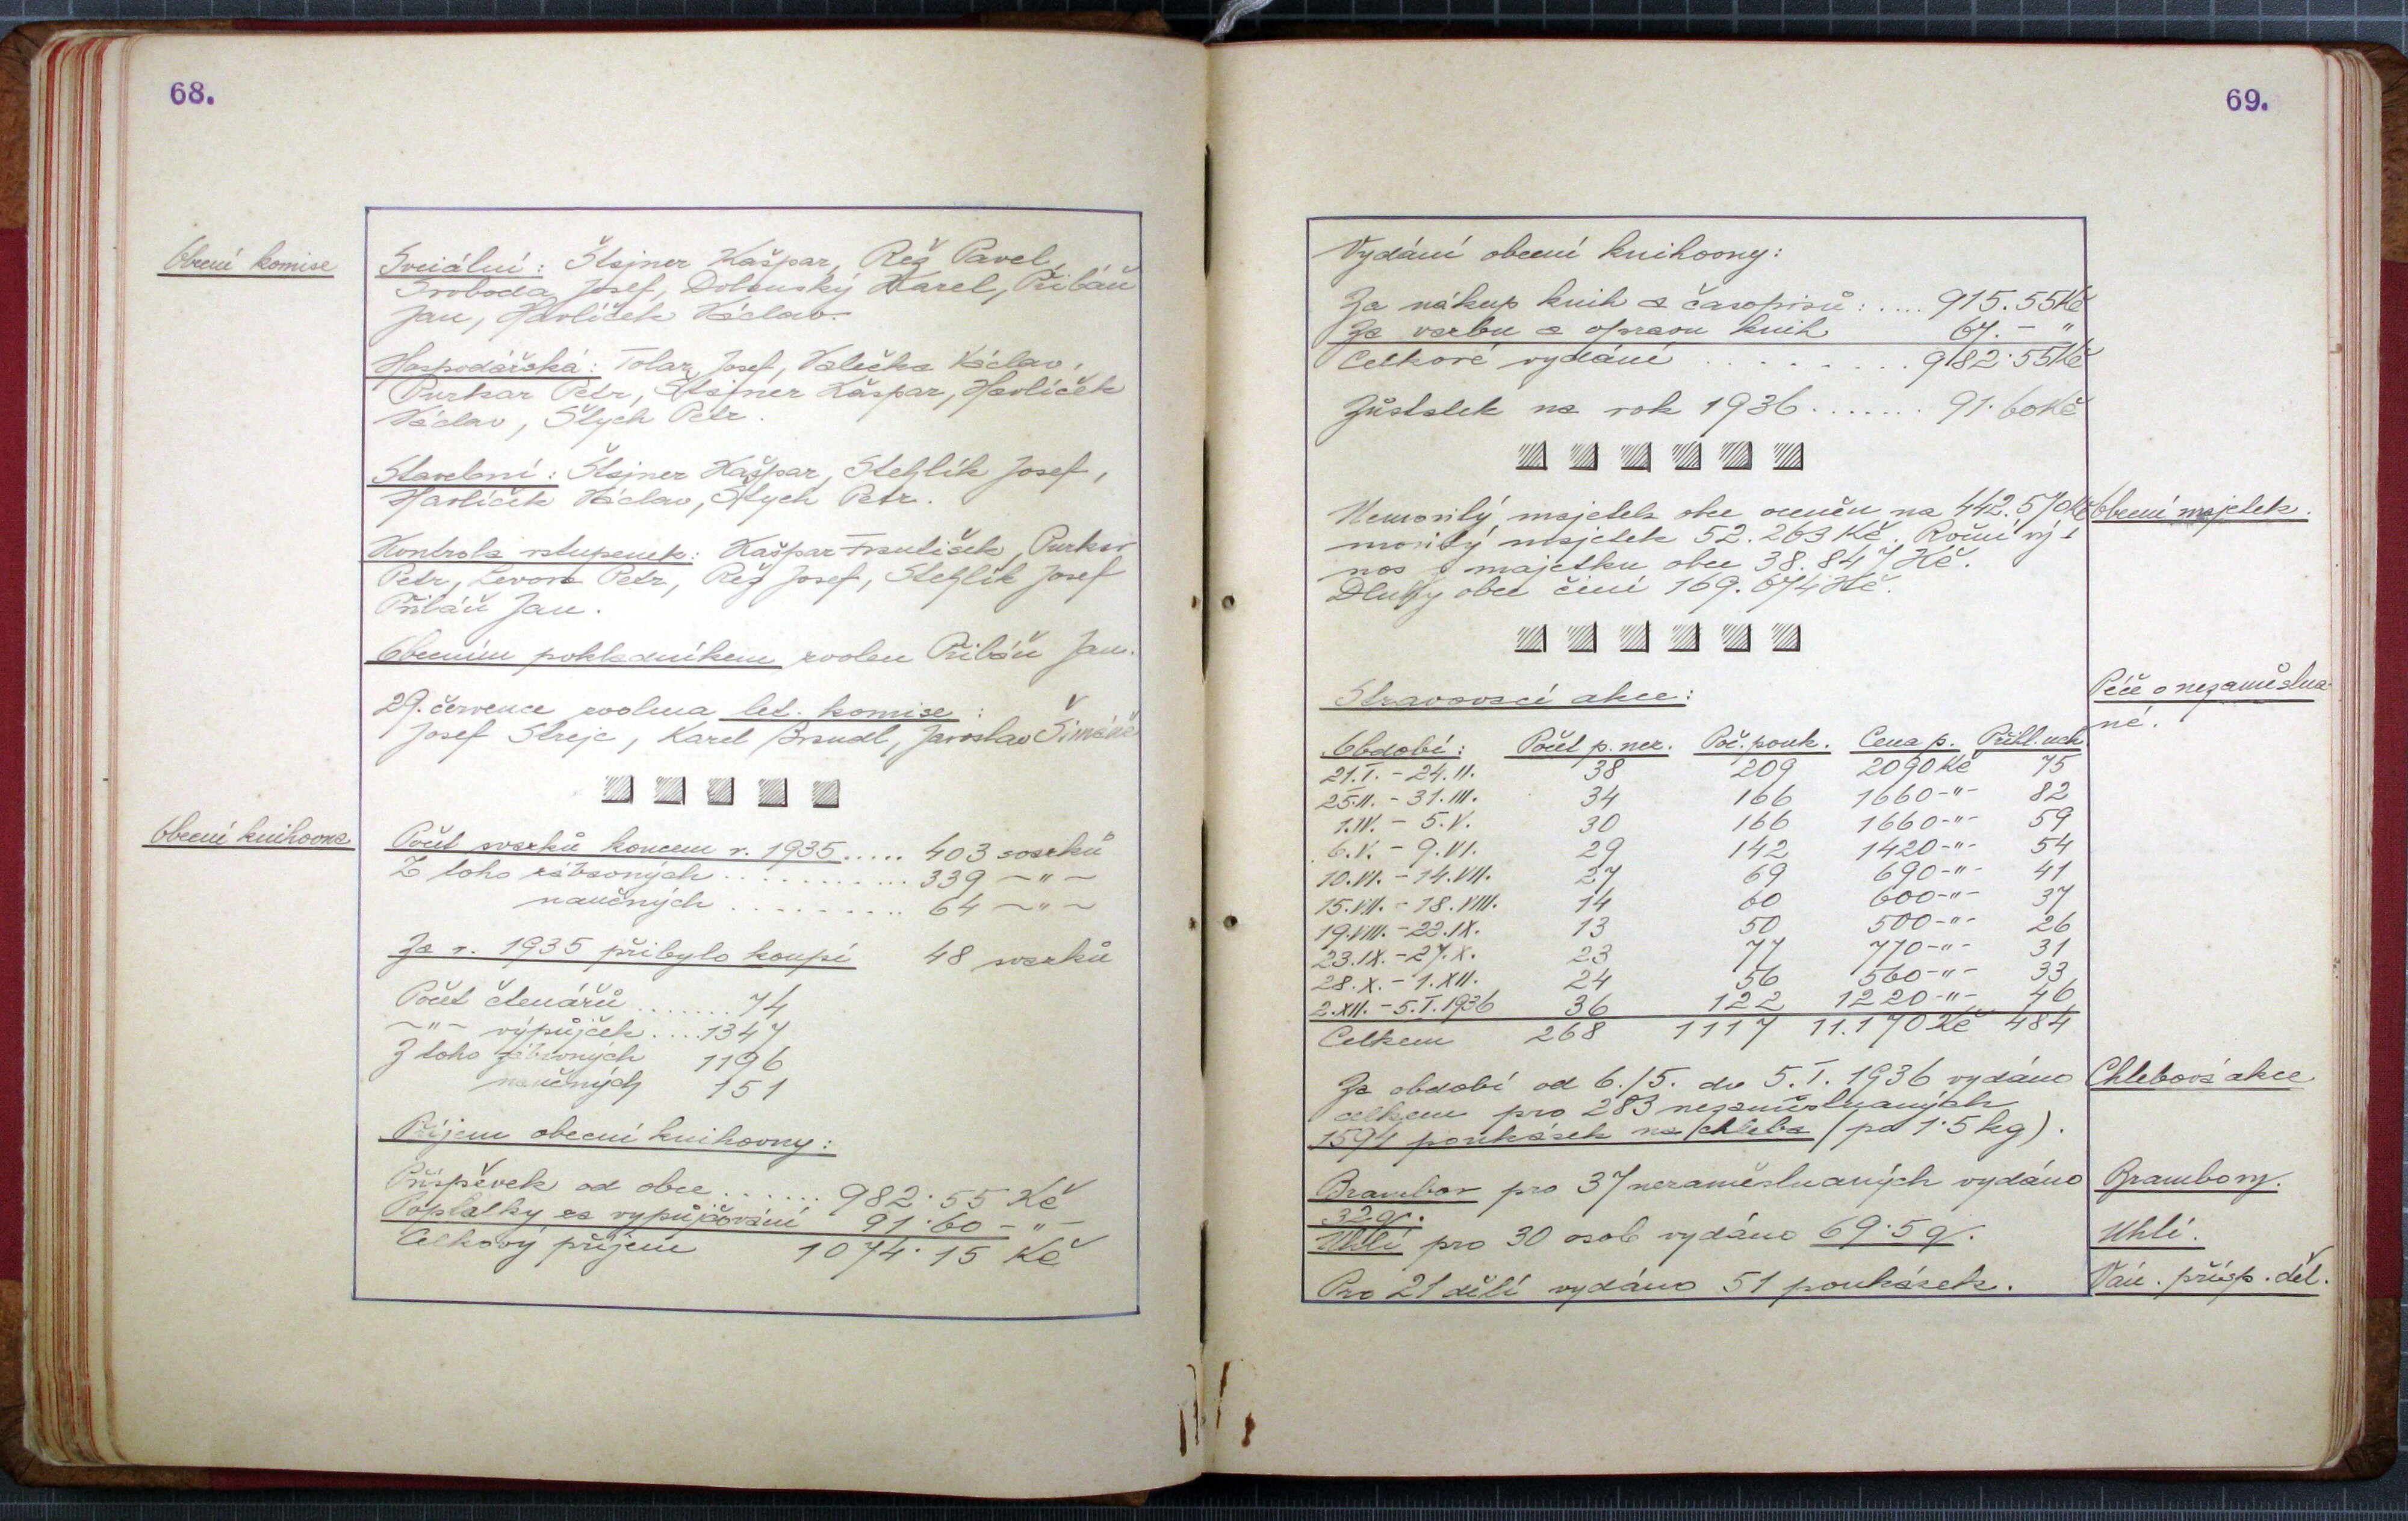 68.
Obecní komise
Sociální: Štajner Kašpar, Rež Pavel,
Svoboda Josef, Dolanský Karel, Přibáň
Jan, Havlíček Václav.
Hospodářská: Tolar Josef, Valečka Václav,
Purkar Petr, Štajner Kašpar, Havlíček
Václav, Štych Petr.
Stavební: Štajner Kašpar, Stehlík Josef,
Havlíček Václav, Štych Petr.
Kontrola vstupenek: Kašpar František, Purkar
Petr, Levora Petr, Rež Josef, Stehlík Josef
Přibáň Jan.
Obecním pokladníkem zvolen Přibáň Jan.
29. července zvolena let. komise:
Josef Strejc, Karel Brandl, Jaroslav Šimáně
Obecní knihovna
Počet svazků koncem r. 1935..... 403 svazků
Z toho zábavných........... 339 -"-
naučných.......... 64 -"-
Za r. 1935 přibylo koupí 48 svazků
Počet čtenářů....... 74
-"- výpůjček.... 1347
Z toho zábavných 1196
naučných 151
Příjem obecní knihovny:
Příspěvek od obce....... 982.55 Kč
Poplatky za vypůjčování 91.60 -"-
Celkový příjem 1074.15 Kč
69.
Vydání obecní knihovny:
Za nákup knih a časopisů:.... 915.55 Kč
Za vazbu a opravu knih 67.- "
Celkové vydání........ 982.55 Kč
Zůstatek na rok 1936....... 91.60 Kč
Nemovitý majetek obce oceněn na 442.570 Kč
Obecní majetek.
movitý majetek 52.263 Kč. Roční vý-
nos z majetku obce 38.847 Kč.
Dluhy obce činí 169.674 Kč.
Stravovací akce:
Péče o nezaměstna-
né.
Období: Počet p. nez. Poč. pouk. Cena p. Přibl. uch.
21.I. - 24.II. 38 209 2090 Kč 75
25.II. - 31.III. 34 166 1660 -"- 82
1.IV. - 5.V. 30 166 1660 -"- 59
6.V. - 9.VI. 29 142 1420 -"- 54
10.VI. - 14.VII. 27 69 690 -"- 41
15.VII. - 18.VIII. 14 60 600 -"- 37
19.VIII. - 22.IX. 13 50 500 -"- 26
23.IX. - 27.X. 23 77 770 -"- 31
28.X. - 1.XII. 24 56 560 -"- 33
2.XII. - 5.I.1936 36 122 1220 -"- 46
Celkem 268 1117 11.170 Kč 484
Za období od 6./5. do 5.I. 1936 vydáno
Chlebová akce
celkem pro 283 nezaměstnaných
1594 poukázek na chleba (po 1.5 kg).
Brambor pro 37 nezaměstnaných vydáno
Brambory.
32 q.
Uhlí pro 30 osob vydáno 69.5 q.
Uhlí.
Pro 21 dětí vydáno 51 poukázek.
Ván. přísp. dět.